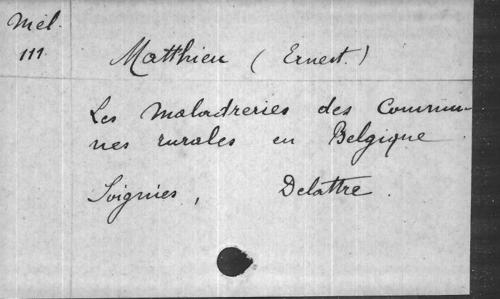 Mél.
111
Matthieu (Ernest.)
Les Maladreries des Commu-
nes rurales en Belgique
Soignies, Delattre.